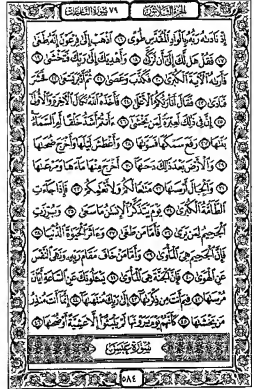 الجزء الثلاثون ٧٩ سورة النازعات
إِذْ نَادَىٰهُ رَبُّهُۥ بِٱلْوَادِ ٱلْمُقَدَّسِ طُوًى ١٦ ٱذْهَبْ إِلَىٰ فِرْعَوْنَ إِنَّهُۥ طَغَىٰ
١٧ فَقُلْ هَل لَّكَ إِلَىٰٓ أَن تَزَكَّىٰ ١٨ وَأَهْدِيَكَ إِلَىٰ رَبِّكَ فَتَخْشَىٰ ١٩
فَأَرَىٰهُ ٱلْـَٔايَةَ ٱلْكُبْرَىٰ ٢٠ فَكَذَّبَ وَعَصَىٰ ٢١ ثُمَّ أَدْبَرَ يَسْعَىٰ ٢٢ فَحَشَرَ
فَنَادَىٰ ٢٣ فَقَالَ أَنَا۠ رَبُّكُمُ ٱلْأَعْلَىٰ ٢٤ فَأَخَذَهُ ٱللَّهُ نَكَالَ ٱلْـَٔاخِرَةِ وَٱلْأُولَىٰٓ
٢٥ إِنَّ فِى ذَٰلِكَ لَعِبْرَةً لِّمَن يَخْشَىٰٓ ٢٦ ءَأَنتُمْ أَشَدُّ خَلْقًا أَمِ ٱلسَّمَآءُ
بَنَىٰهَا ٢٧ رَفَعَ سَمْكَهَا فَسَوَّىٰهَا ٢٨ وَأَغْطَشَ لَيْلَهَا وَأَخْرَجَ ضُحَىٰهَا
٢٩ وَٱلْأَرْضَ بَعْدَ ذَٰلِكَ دَحَىٰهَآ ٣٠ أَخْرَجَ مِنْهَا مَآءَهَا وَمَرْعَىٰهَا
٣١ وَٱلْجِبَالَ أَرْسَىٰهَا ٣٢ مَتَٰعًا لَّكُمْ وَلِأَنْعَٰمِكُمْ ٣٣ فَإِذَا جَآءَتِ
ٱلطَّآمَّةُ ٱلْكُبْرَىٰ ٣٤ يَوْمَ يَتَذَكَّرُ ٱلْإِنسَٰنُ مَا سَعَىٰ ٣٥ وَبُرِّزَتِ
ٱلْجَحِيمُ لِمَن يَرَىٰ ٣٦ فَأَمَّا مَن طَغَىٰ ٣٧ وَءَاثَرَ ٱلْحَيَوٰةَ ٱلدُّنْيَا ٣٨
فَإِنَّ ٱلْجَحِيمَ هِىَ ٱلْمَأْوَىٰ ٣٩ وَأَمَّا مَنْ خَافَ مَقَامَ رَبِّهِۦ وَنَهَى ٱلنَّفْسَ
عَنِ ٱلْهَوَىٰ ٤٠ فَإِنَّ ٱلْجَنَّةَ هِىَ ٱلْمَأْوَىٰ ٤١ يَسْـَٔلُونَكَ عَنِ ٱلسَّاعَةِ أَيَّانَ
مُرْسَىٰهَا ٤٢ فِيمَ أَنتَ مِن ذِكْرَىٰهَآ ٤٣ إِلَىٰ رَبِّكَ مُنتَهَىٰهَآ ٤٤ إِنَّمَآ أَنتَ مُنذِرُ
مَن يَخْشَىٰهَا ٤٥ كَأَنَّهُمْ يَوْمَ يَرَوْنَهَا لَمْ يَلْبَثُوٓا۟ إِلَّا عَشِيَّةً أَوْ ضُحَىٰهَا ٤٦
سُورَةُ عَبَسَ
٥٨٤